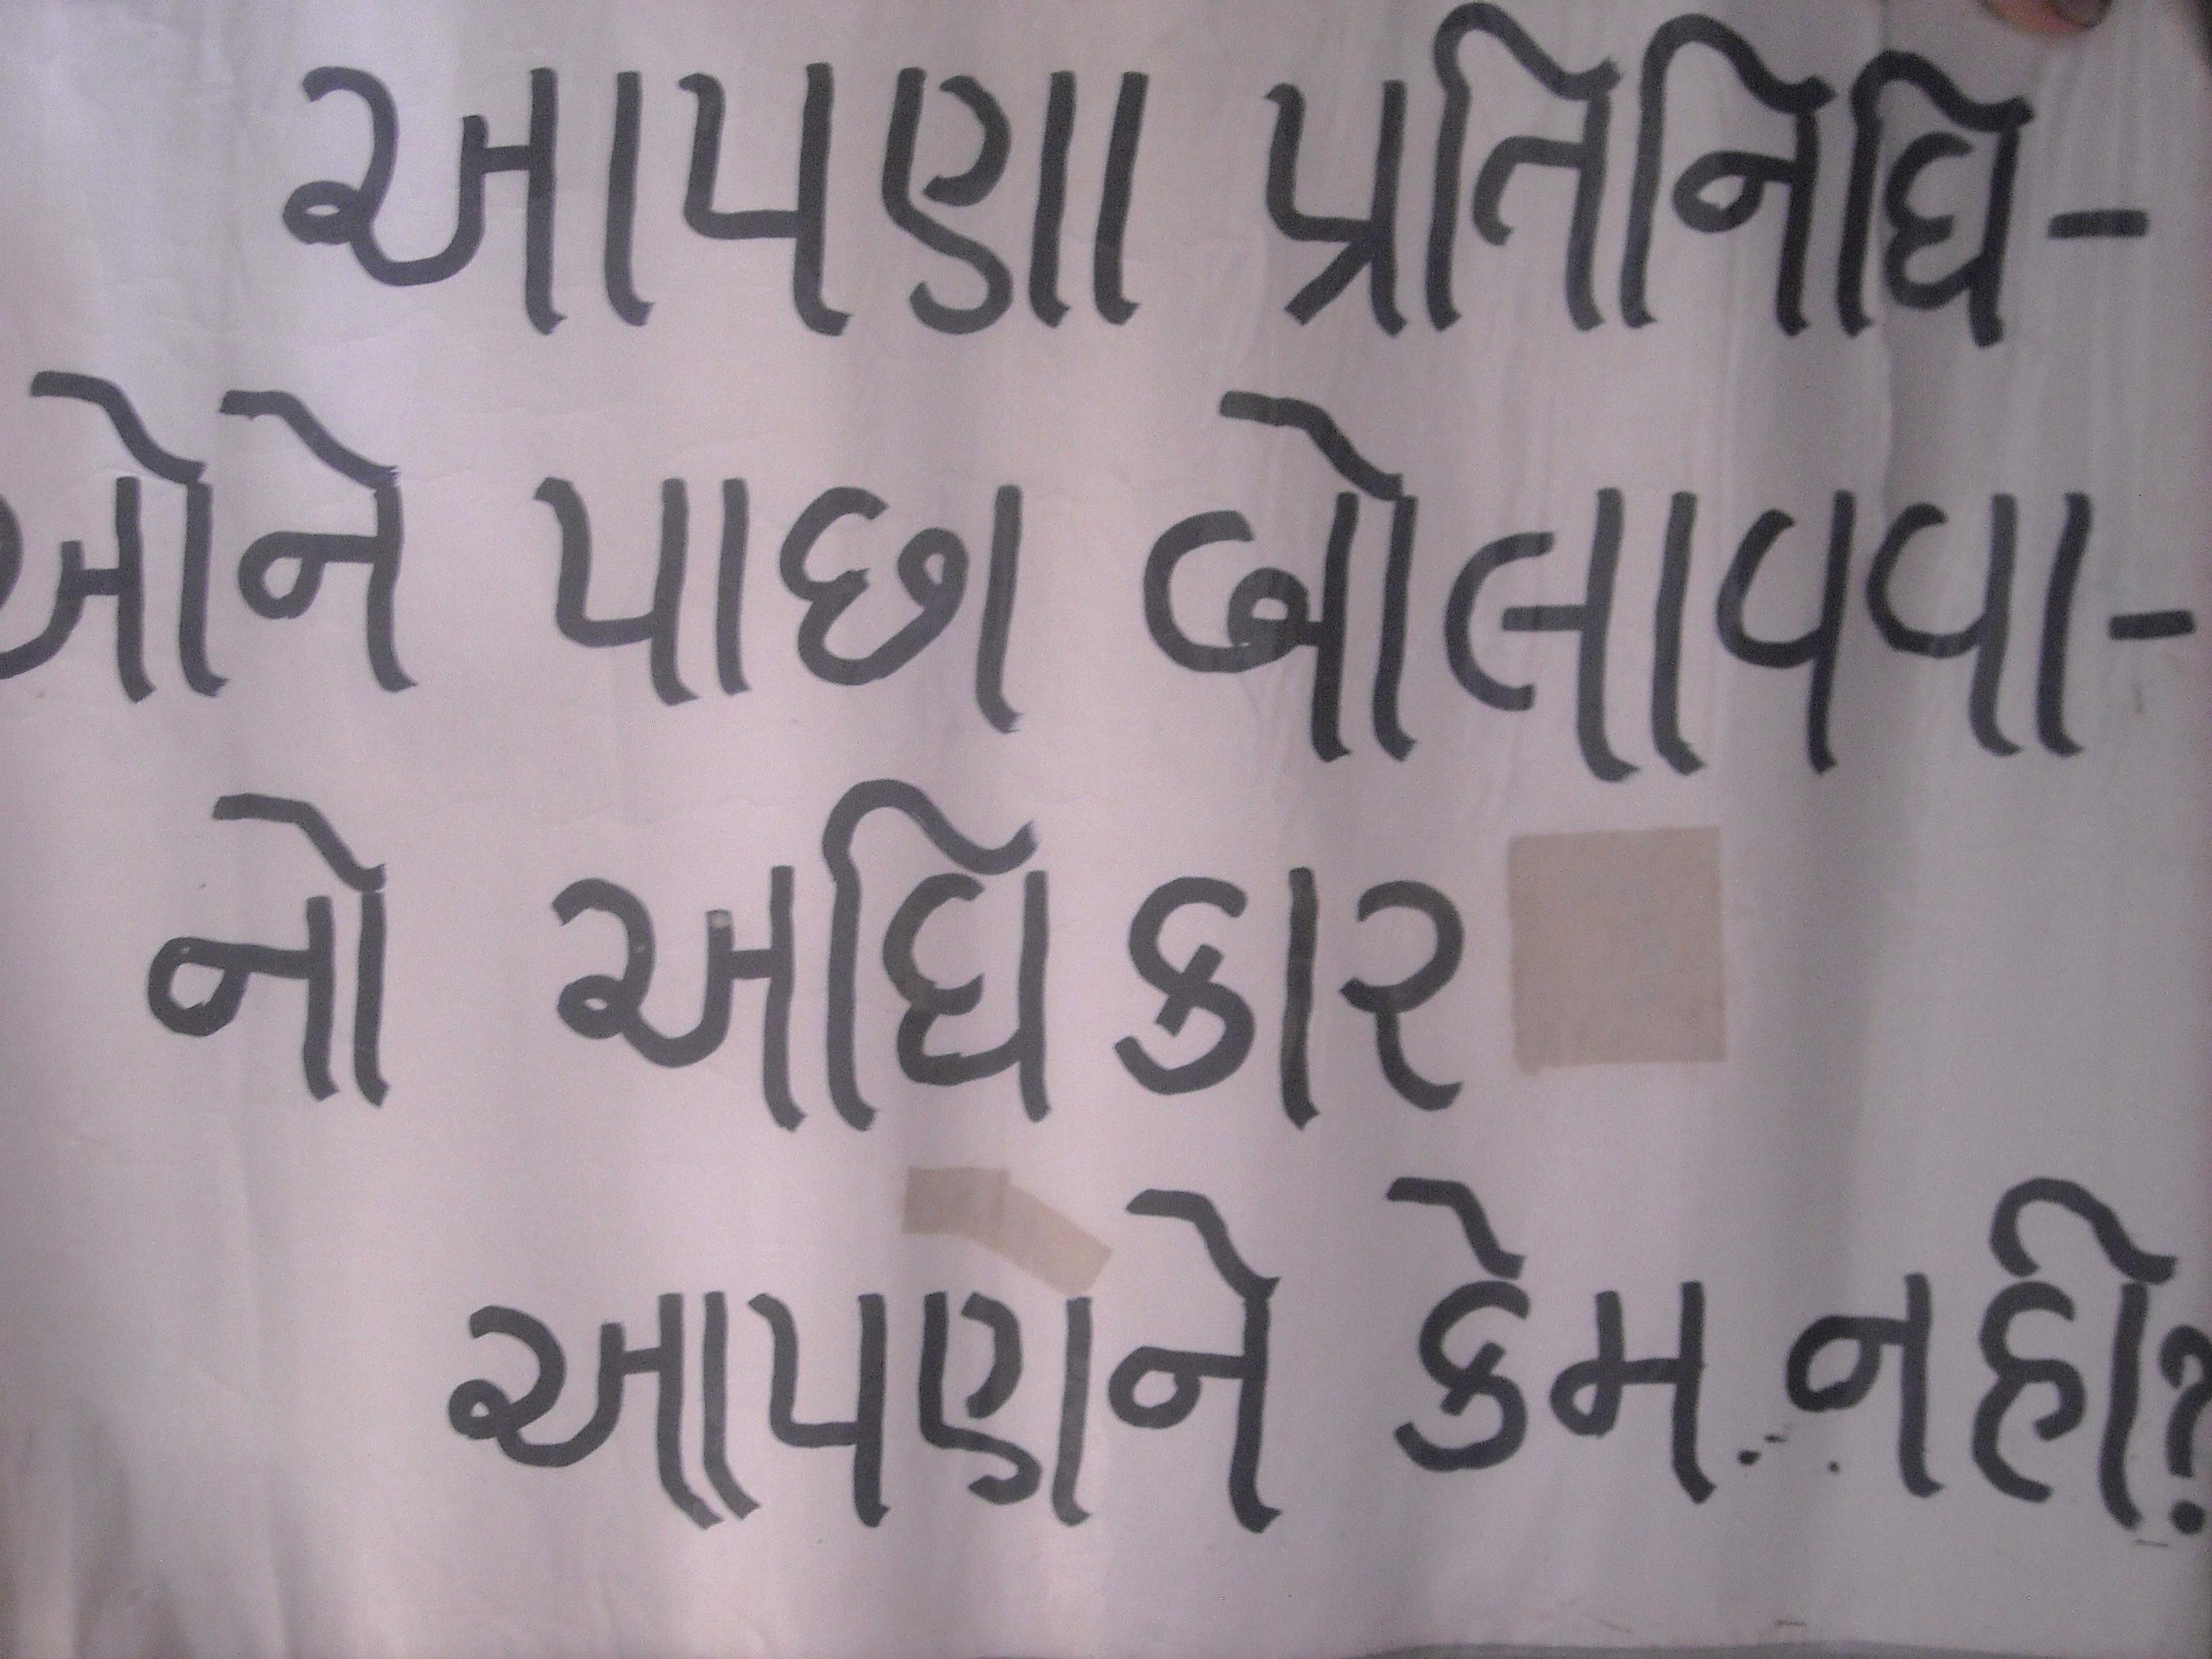 આપણા પ્રતિનિધિ-
ઓને પાછા બોલાવવા-
નો અધિકાર
આપણને કેમ નહીં?